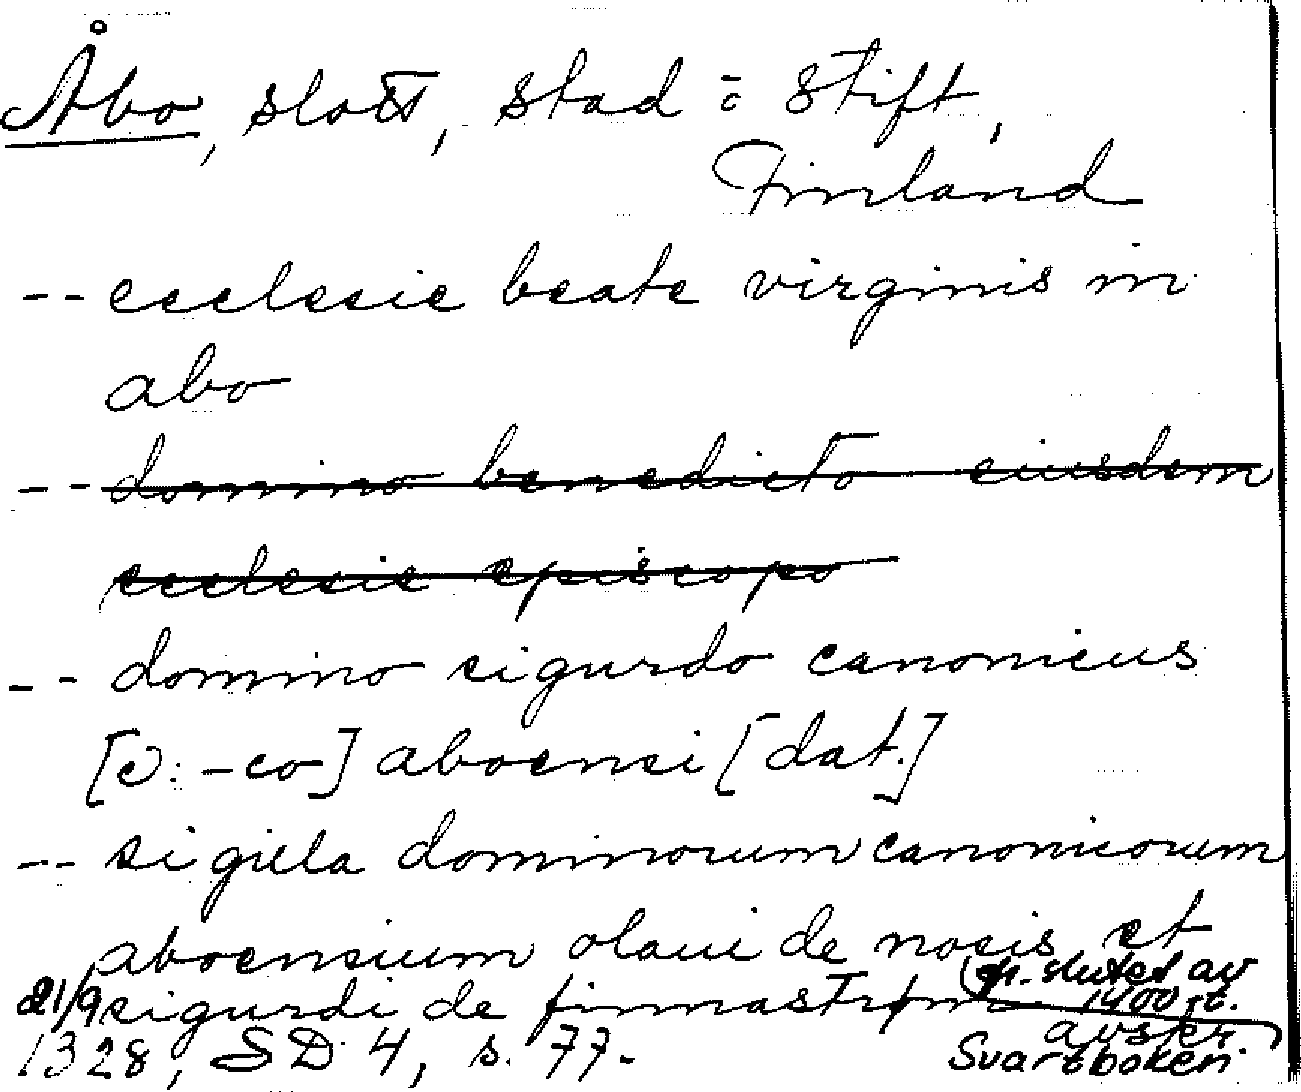 Åbo, slott, stad o. stift,
Finland
-- ecclesie beate virginis in
abo
-- domino benedicto eiusdem
ecclesie episcopo
-- domino sigurdo canonicus
[ɔ: -co] aboensi [dat.]
-- sigilla dominorum canonicorum
aboensium olaui de nosis et
sigurdi de finnastrøm
(pr. slutet av
1400-t.
avskr.
Svartboken)
21/9
1328, SD 4, s. 77.